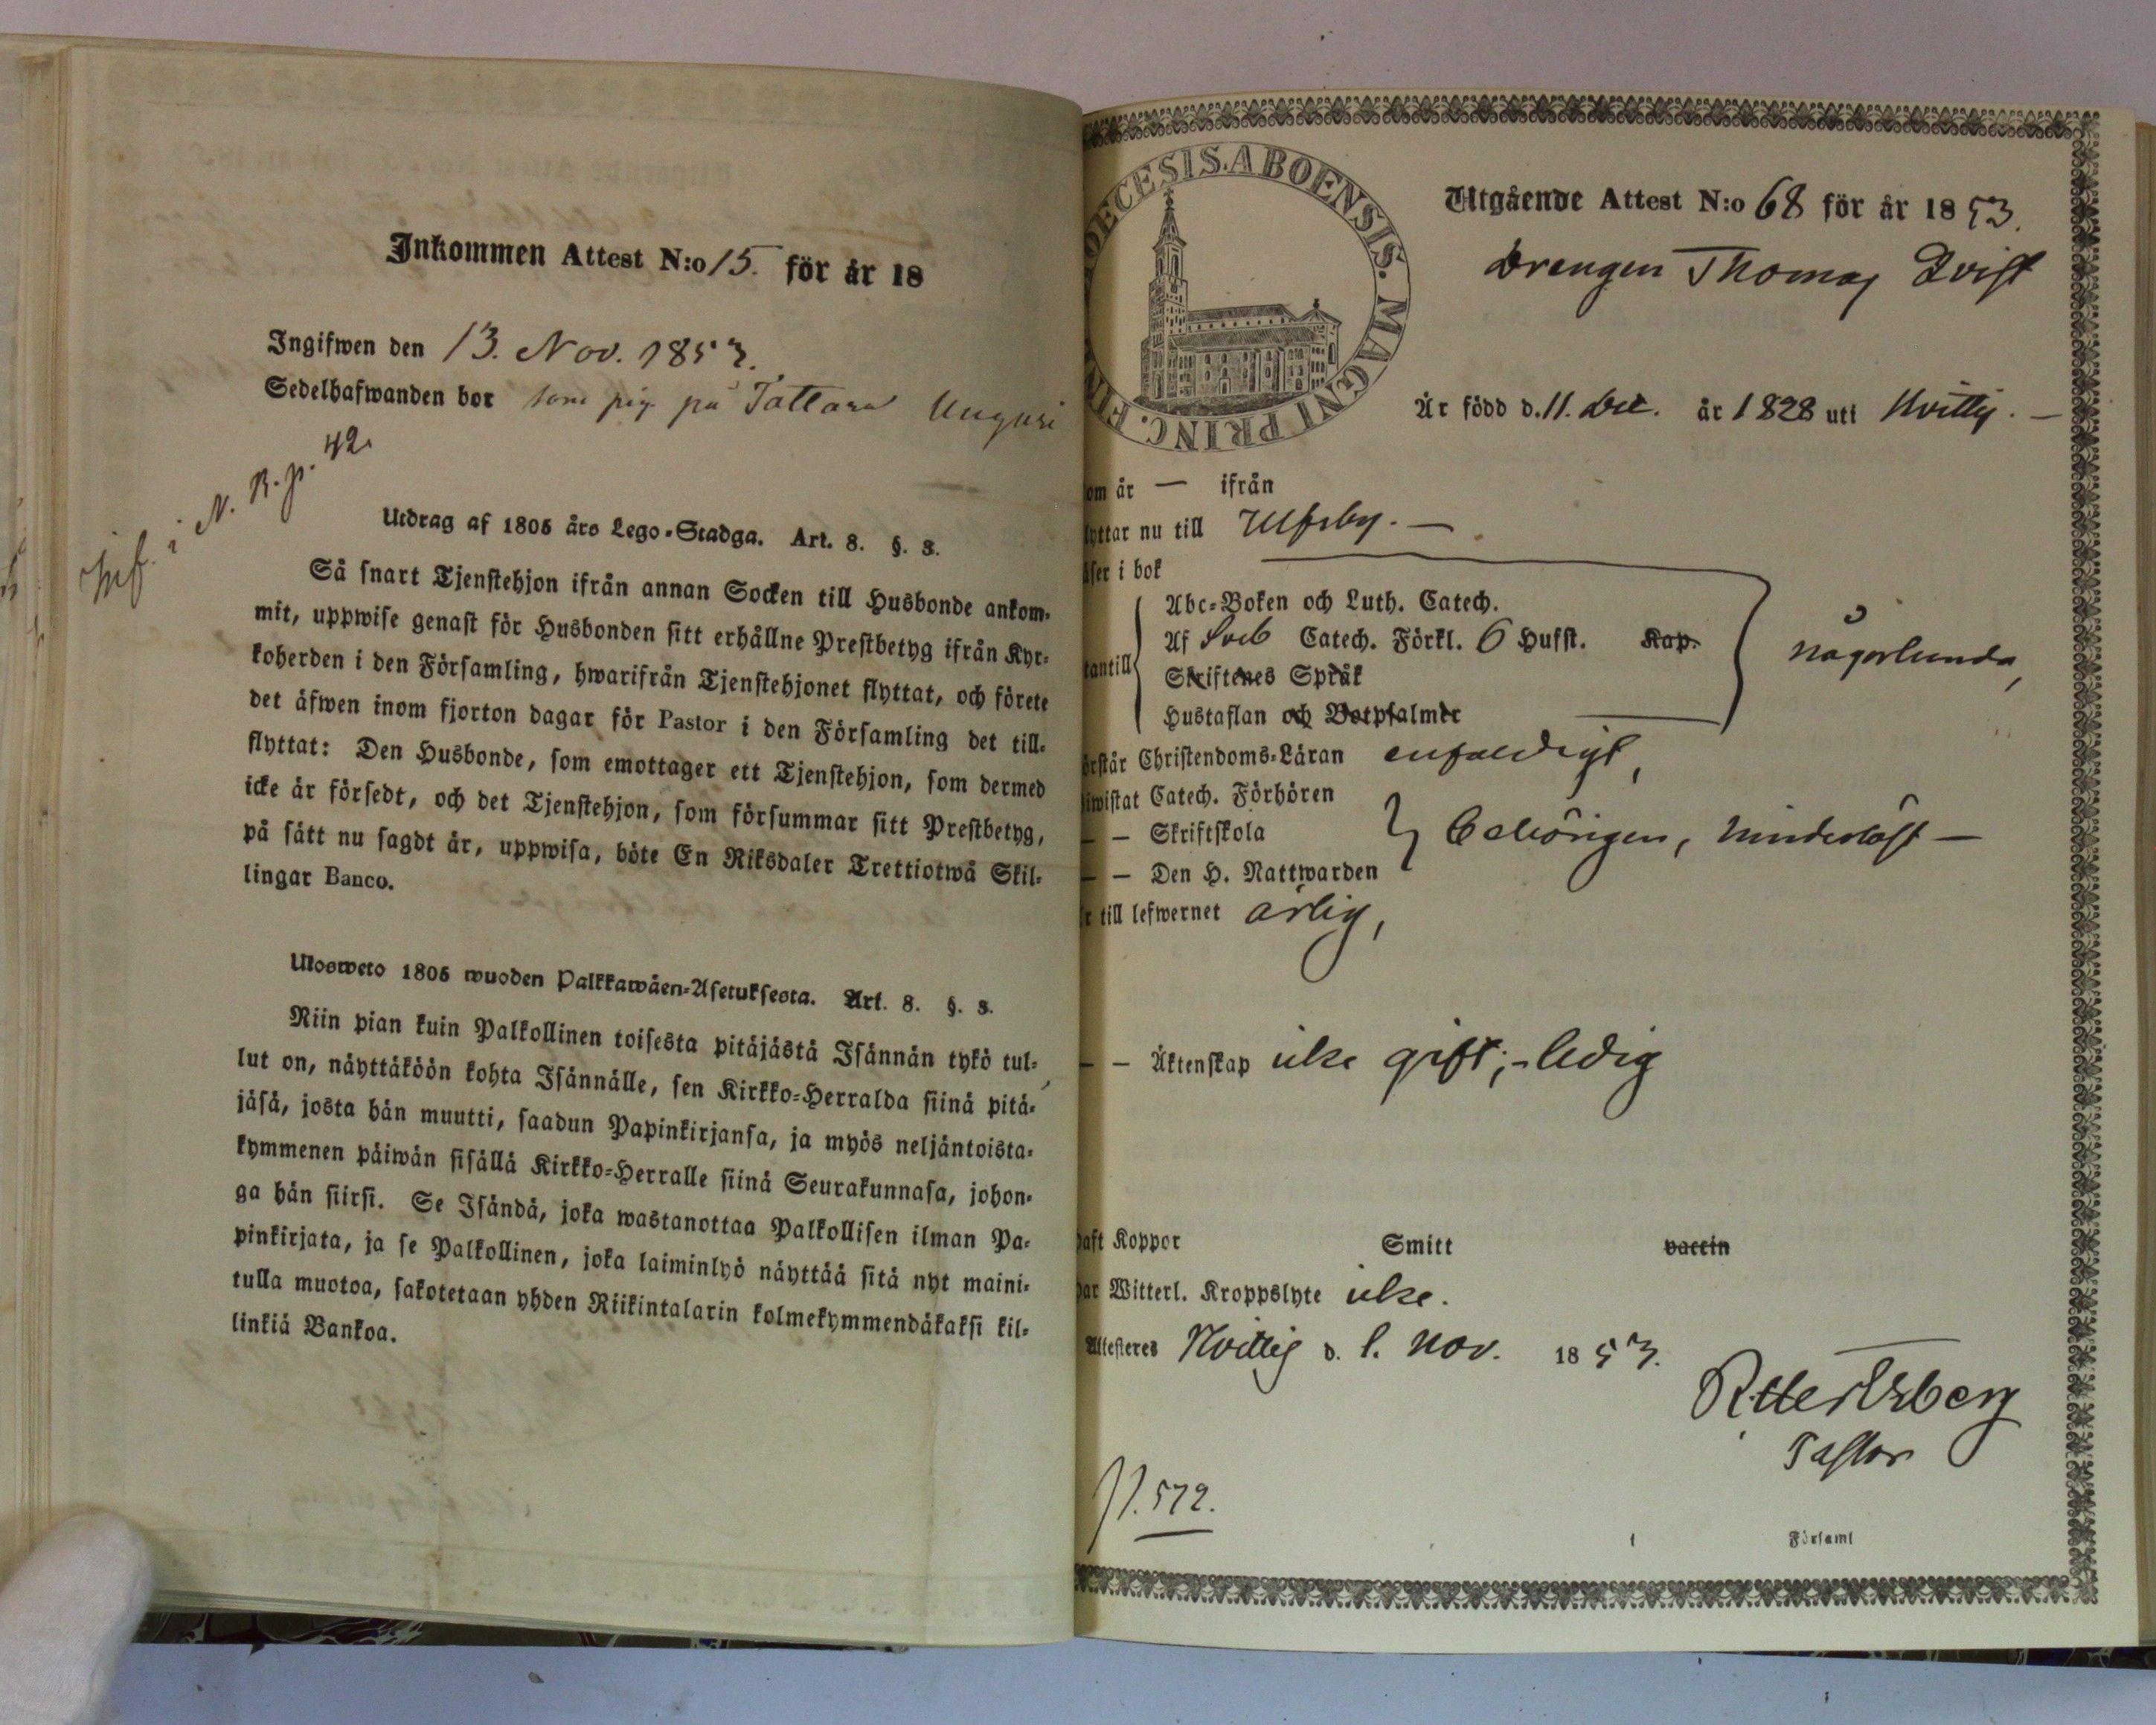 Inkommen Attest N:o 15. för år 18
Ingifwen den 13. Nov. 1853.
Sedelhafwanden bor som pig på Tattara Unguri
inf. i N. B. p. 42.
Utdrag af 1805 års Lego-Stadga. Art. 8. §. 3.
Så snart Tjenstehjon ifrån annan Socken till Husbonde ankom-
mit, uppwise genast för Husbonden sitt erhållne Prestbetyg ifrån Kyr-
koherden i den Församling, hwarifrån Tjenstehjonet flyttat, och förete
det äfwen inom fjorton dagar för Pastor i den Församling det till-
flyttat: Den Husbonde, som emottager ett Tjenstehjon, som dermed
icke är försedt, och det Tjenstehjon, som försummar sitt Prestbetyg,
på sätt nu sagdt är, uppwisa, böte En Riksdaler Trettiotwå Skil-
lingar Banco.
Ulosweto 1805 wuoden Palkkawäen-Asetuksesta. Art. 8. §. 3.
Niin pian kuin Palkollinen toisesta pitäjästä Isännän tykö tul-
lut on, näyttäköön kohta Isännälle, sen Kirkko-Herralda siinä pitä-
jäsä, josta hän muutti, saadun Papinkirjansa, ja myös neljäntoista-
kymmenen päiwän sisällä Kirkko-Herralle siinä Seurakunnasa, johon-
ga hän siirsi. Se Isändä, joka wastanottaa Palkollisen ilman Pa-
pinkirjata, ja se Palkollinen, joka laiminlyö näyttää sitä nyt maini-
tulla muotoa, sakotetaan yhden Riikintalarin kolmekymmendäkaksi kil-
linkiä Bankoa.
DIOECESIS. ABOENSIS. MAGNI PRINC. FIN
Utgående Attest N:o 68 för år 1853.
Drengen Thomas Qvist
Är född d. 11. Dec. år 1828 uti Hvittis. —
om år — ifrån
lyttar nu till Ulfsby. —
äser i bok
Abc-Boken och Luth. Catech.
Af Sveb Catech. Förkl. 6 Hufst. Kap.
tantill Skriftenes Språk någorlunda,
Hustaflan och Botpsalmer
örstår Christendoms-Läran enfaldigt,
iwistat Catech. Förhören
— — Skriftskola behörigen, hinderlöst —
— — Den H. Nattwarden
r till lefwernet ärlig,
— — Äktenskap icke gift; - ledig
haft Koppor Smitt vaccin
har Witterl. Kroppslyte icke.
Attesteres Hvittis d. 1. Nov. 1853.
Pastor
p. 572.
Församl